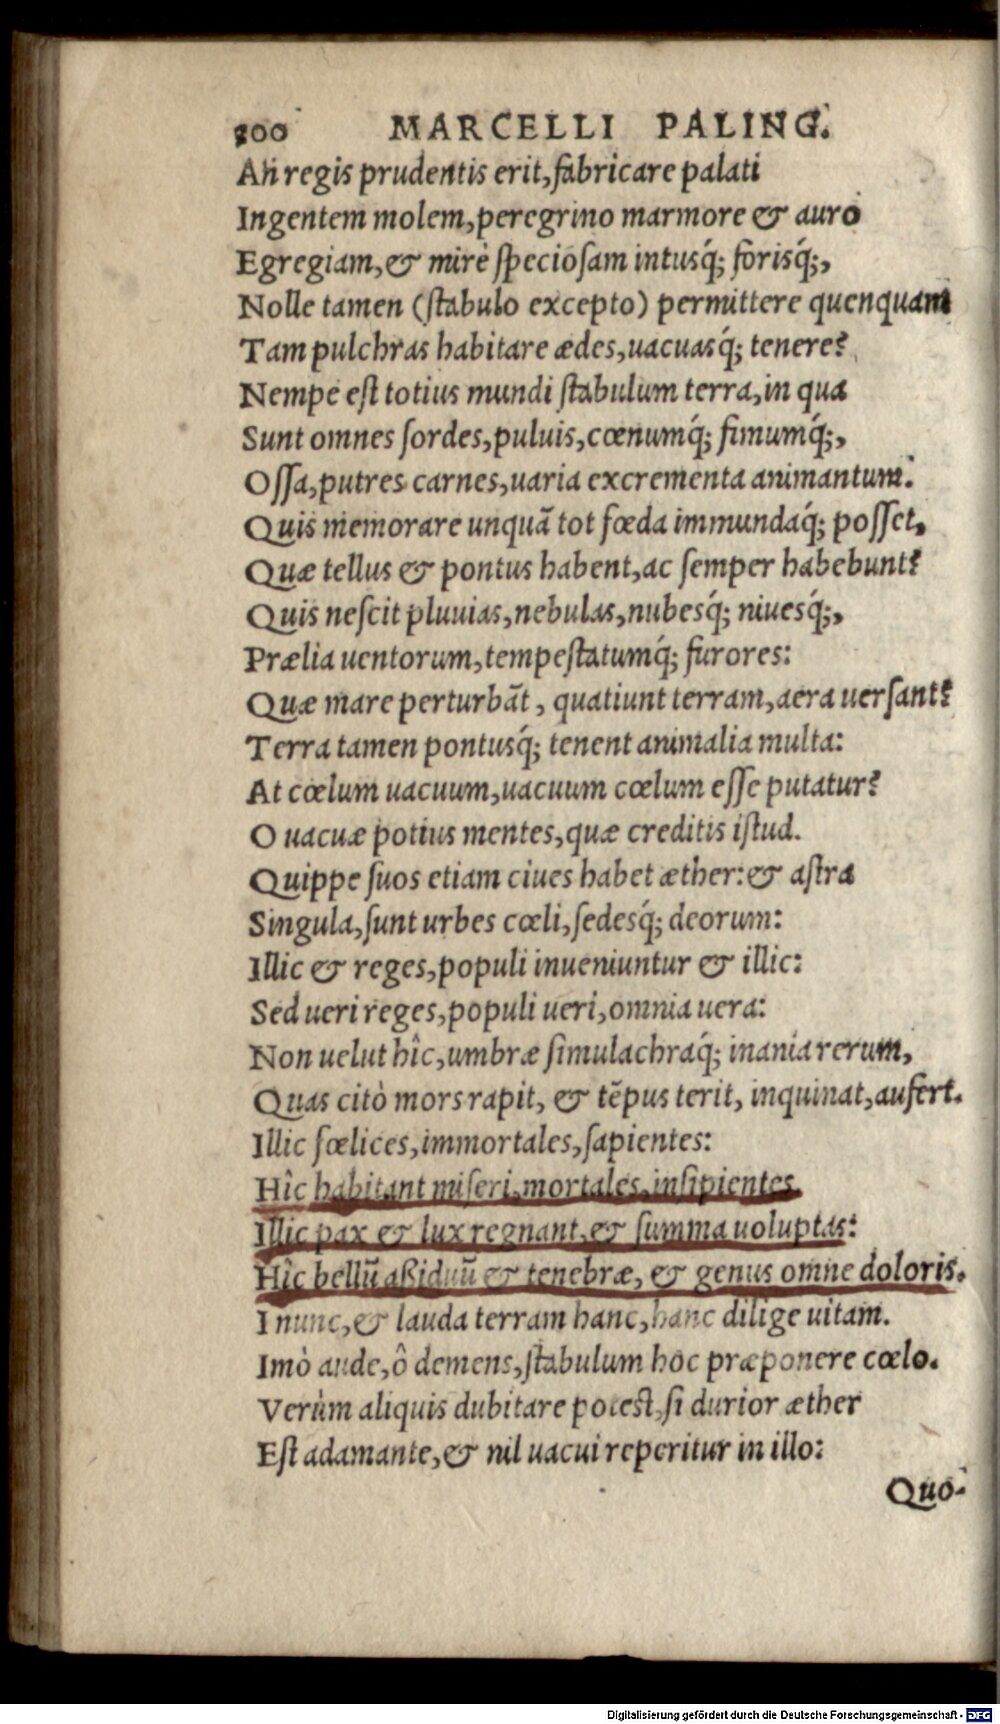 300 MARCELLI PALING.
An regis prudentis erit, fabricare palati
Ingentem molem, peregrino marmore & auro
Egregiam, & mirè speciosam intusq́; forisq́;,
Nolle tamen (stabulo excepto) permittere quenquam
Tam pulchras habitare ædes, uacuasq́; tenere?
Nempe est totius mundi stabulum terra, in qua
Sunt omnes sordes, puluis, cœnumq́; fimumq́;,
Ossa, putres carnes, uaria excrementa animantum.
Quis memorare unquã tot fœda immundaq́; posset,
Quæ tellus & pontus habent, ac semper habebunt?
Quis nescit pluuias, nebulas, nubesq́; niuesq́;,
Prælia uentorum, tempestatumq́; furores:
Quæ mare perturbãt, quatiunt terram, aera uersant?
Terra tamen pontusq́; tenent animalia multa:
At cœlum uacuum, uacuum cœlum esse putatur?
O uacuæ potius mentes, quæ creditis istud.
Quippe suos etiam ciues habet æther: & astra
Singula, sunt urbes cœli, sedesq́; deorum:
Illic & reges, populi inueniuntur & illic:
Sed ueri reges, populi ueri, omnia uera:
Non uelut hîc, umbræ simulachraq́; inania rerum,
Quas citò mors rapit, & tẽpus terit, inquinat, aufert.
Illic fœlices, immortales, sapientes:
Hîc habitant miseri, mortales, insipientes.
Illic pax & lux regnant, & summa uoluptas:
Hîc bellũ aßiduũ & tenebræ, & genus omne doloris.
I nunc, & lauda terram hanc, hanc dilige uitam.
Imò aude, ô demens, stabulum hoc præponere cœlo.
Verùm aliquis dubitare potest, si durior æther
Est adamante, & nil uacui reperitur in illo:
Quo-
Digitalisierung gefördert durch die Deutsche Forschungsgemeinschaft - DFG